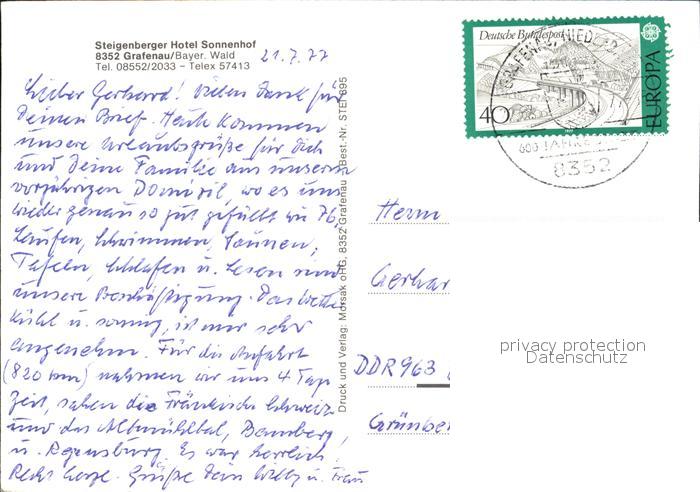 Steigenberger Hotel Sonnenhof
8352 Grafenau/Bayer. Wald
Tel. 08552/2033 – Telex 57413
21.7.77
Lieber Gerhard! Vielen Dank für
Deinen Brief. Heute kommen
unsere Urlaubsgrüße für Dich
und Deine Familie aus unserem
vorjährigen Domizil, wo es uns
wieder genau so gut gefällt wie 76.
Laufen, Schwimmen, Saunen,
Tafeln, Schlafen u. Lesen sind
unsere Beschäftigung. Das Wetter
kühl u. sonnig, ist mir sehr
angenehm. Für die Anfahrt
(820 km) nahmen wir uns 4 Tage
Zeit, sahen die Fränkische Schweiz
und das Altmühltal, Bamberg,
u. Regensburg. Es war herrlich.
Recht herzl. Grüße Dein Willy u. Frau
Druck und Verlag: Morsak oHG, 8352 Grafenau Best.-Nr. STEI 895
Deutsche Bundespost
40
EUROPA
GRAFENAU, NIEDERB
600 JAHRE
8352
Herrn
Gerhar
DDR 963
Grünbe
privacy protection
Datenschutz